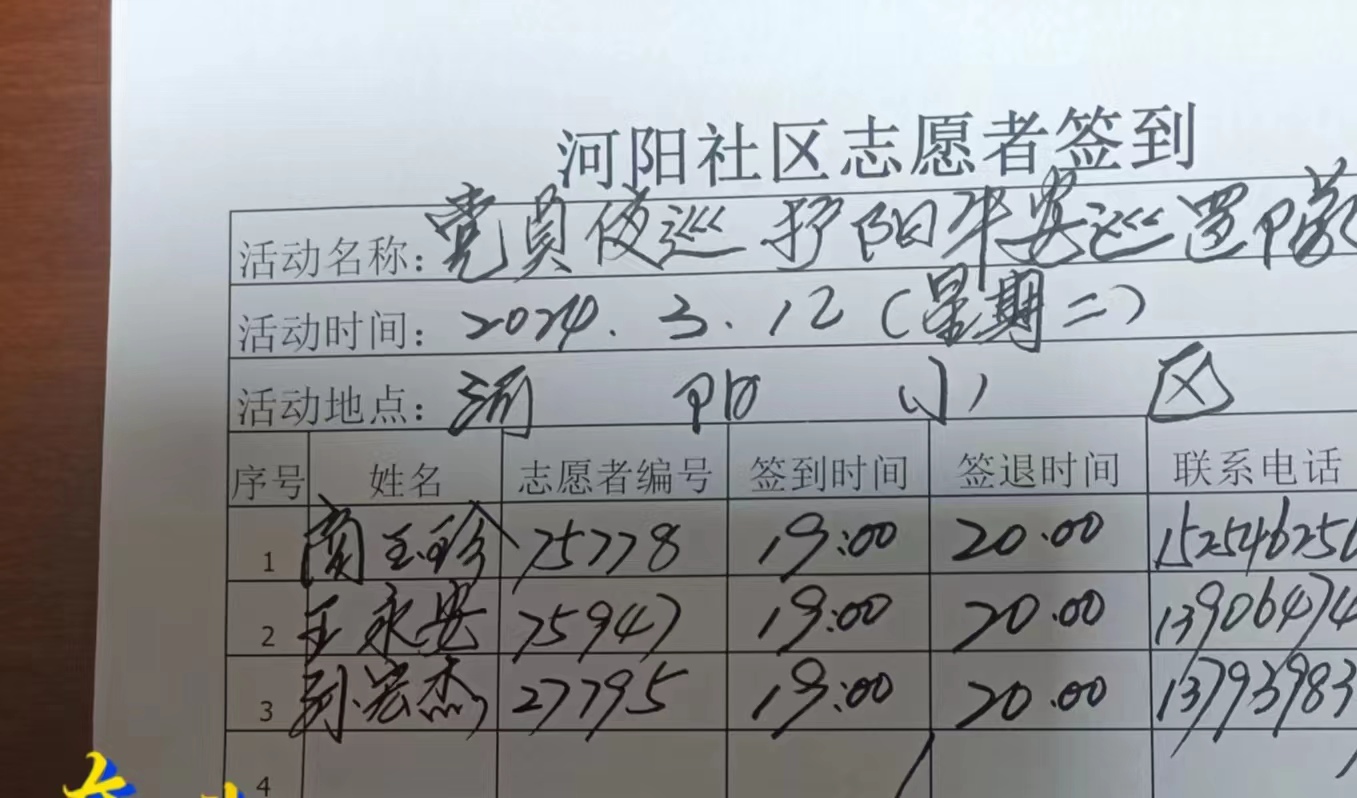 河阳社区志愿者签到
活动名称: 党员夜巡 护阳平安巡逻隊
活动时间: 2024.3.12(星期二)
活动地点: 河 阳 小 区
序号 姓名 志愿者编号 签到时间 签退时间 联系电话
1 玉珍 75778 19:00 20.00 152546256
2 王永安 75947 19:00 20.00 13906474
3 孙宏杰 27795 19:00 20.00 13793983
4